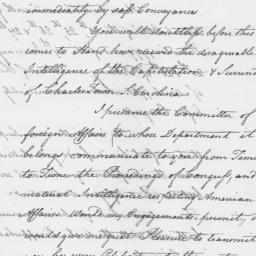 immediately by safe Conveyance
You will doubtless before this
comes to Hand have received the disagreeable
Intelligence of the Capitulation & Surrend
of Charles Town S. Carolina
I presume the Committee of
foreign Affairs to whose Department it
belongs communicate to you from Time
to Time the Proceedings of Congress, and
material Intelligence respecting American
Affairs. Would my Engagements permit, it
would give me great Pleasure to transmit
you by every